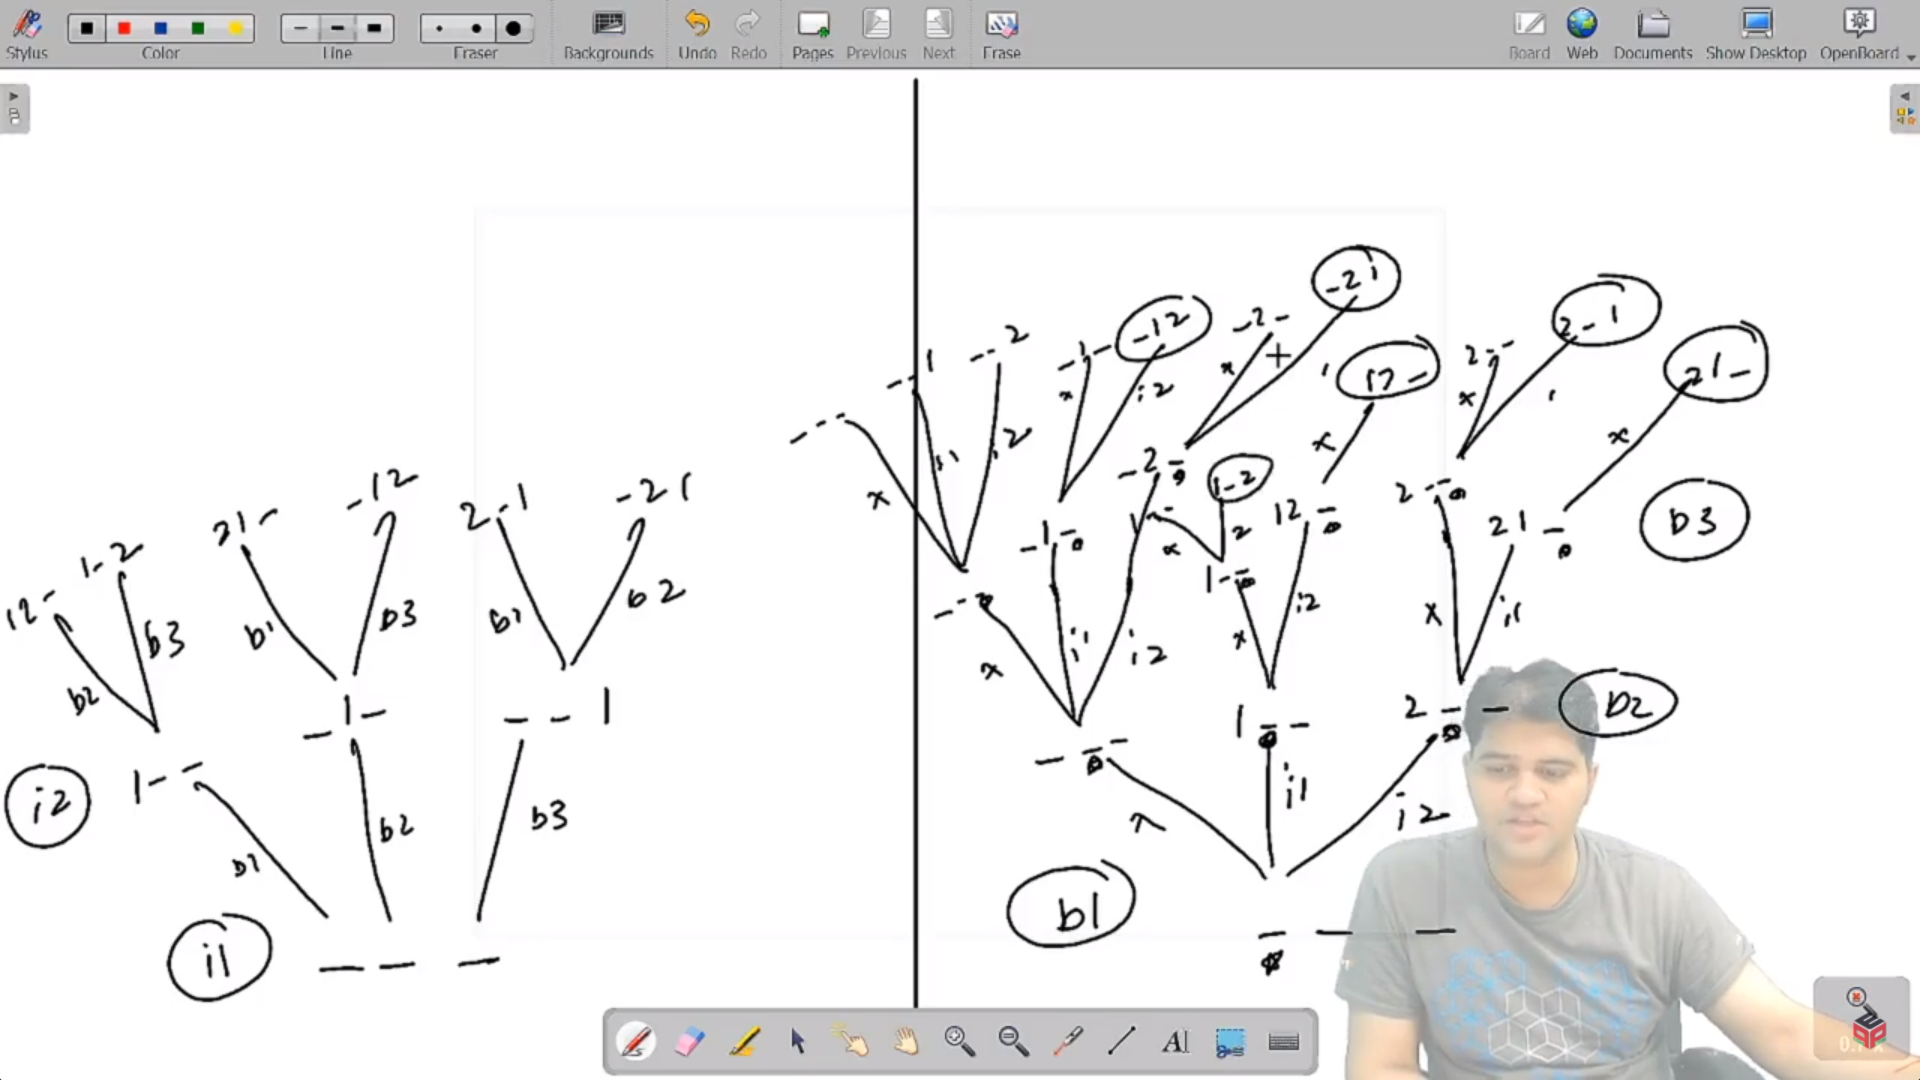 Stylus
Color
Line
Eraser
Backgrounds
Undo
Redo
Pages
Previous
Next
Erase
Board
Web
Documents
Show Desktop
OpenBoard
12-
1-2
21-
-12
2-1
-21
b2
b3
b1
b3
b1
b2
1--
-1-
--1
i2
b1
b2
b3
i1
---
---
--1
--2
-1-
-12
-2-
-21
12-
2--
2-1
21-
x
i1
i2
x
i2
x
1
x
x
1
x
---
-1-
-2-
1--
1-2
12-
2--
21-
b3
x
2
1--
x
i1
i2
x
i2
x
i1
---
1--
2--
b2
x
i1
i2
b1
---